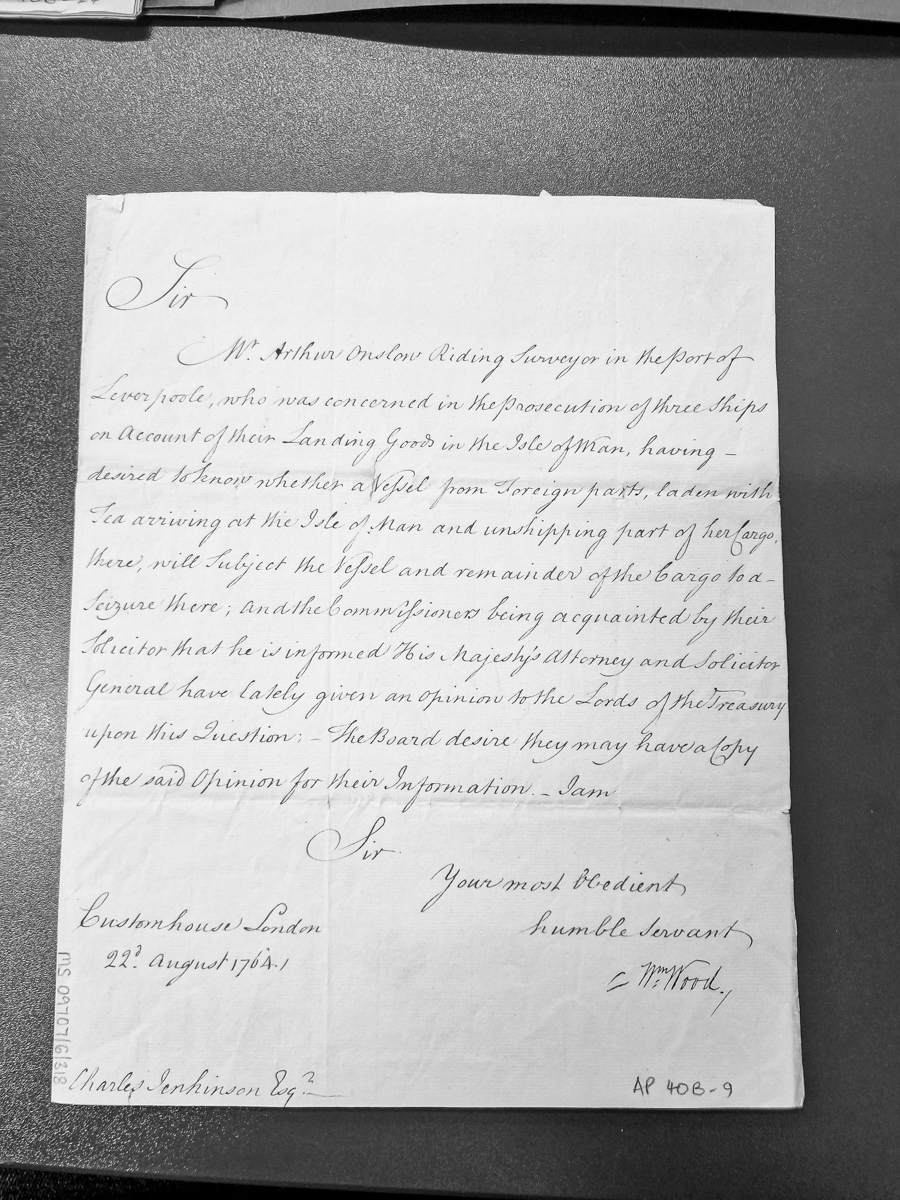 Sir
Mr. Arthur Onslow Riding Surveyor in the Port of
Leverpoole, who was concerned in the Prosecution of three Ships
on Account of their Landing Goods in the Isle of Man, having –
desired to know whether a Vessel from Foreign parts, laden with
Tea arriving at the Isle of Man and unshipping part of her Cargo,
there, will Subject the Vessel and remainder of the Cargo to a –
Seizure there; And the Commissioners being acquainted by their
Solicitor that he is informed His Majesty's Attorney and Solicitor
General have lately given an Opinion to the Lords of the Treasury
upon this Question; – The Board desire they may have a Copy
of the said Opinion for their Information. – I am
Sir
Your most Obedient
humble Servant
Wm. Wood.
Customhouse London
22d. August 1764.
Charles Jenkinson Esqr.
MS 09707/6/318
AP 40B-9